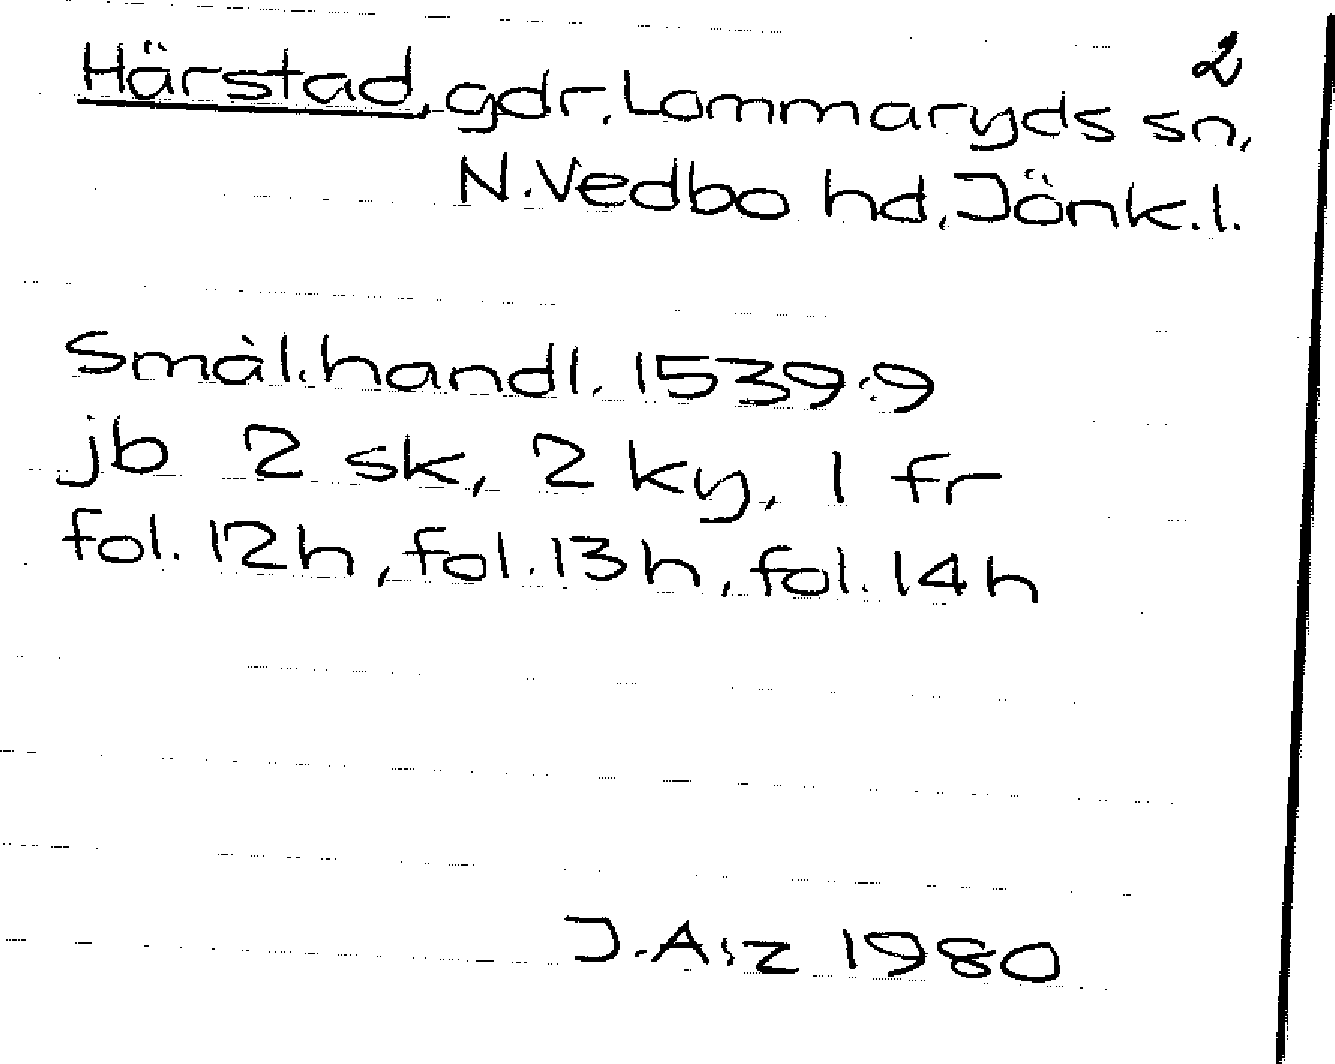 2
Härstad, gdr, Lommaryds sn,
N. Vedbo hd, Jönk. l.
Smål. handl. 1539:9
jb 2 sk, 2 ky, 1 fr
fol. 12h, fol. 13h, fol. 14h
J. A:z 1980